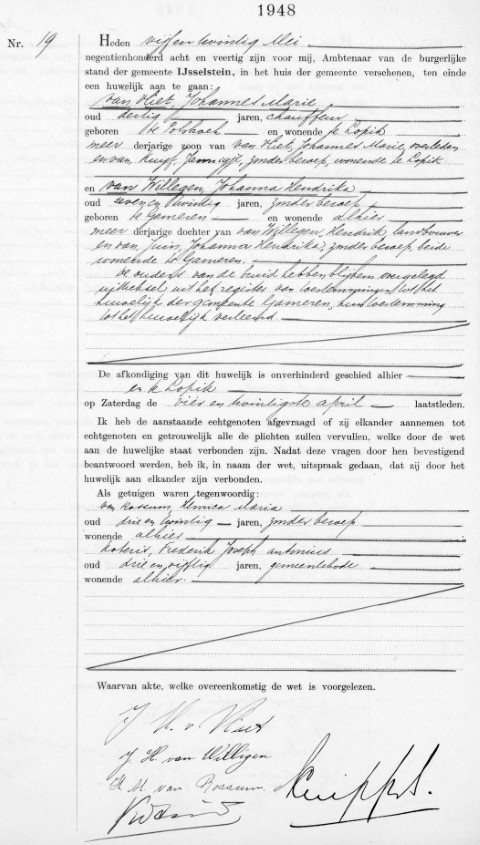 1948
Nr. 19 Heden vijf en twintig Mei
negentienhonderd acht en veertig zijn voor mij, Ambtenaar van de burgerlijke
stand der gemeente IJsselstein, in het huis der gemeente verschenen, ten einde
een huwelijk aan te gaan:
van Vliet, Johannes Marie
oud dertig jaren, chauffeur
geboren te Polsbroek en wonende te Lopik
meer derjarige zoon van van Vliet, Johannes Marie, overleden
en van Kuijf, Jannigje, zonder beroep, wonende te Lopik
en van Willegen, Johanna Hendrika
oud zeven en twintig jaren, zonder beroep
geboren te Gameren en wonende alhier
meer derjarige dochter van van Willegen, Hendrik, landbouwer
en van Tuin, Johanna Hendrika, zonder beroep, beide
wonende te Gameren.
De ouders van de bruid hebben blijkens overgelegd
uittreksel uit het register van toestemmingen tot het
huwelijk der gemeente Gameren, hun toestemming
tot het huwelijk verleend.
De afkondiging van dit huwelijk is onverhinderd geschied alhier
en te Lopik
op Zaterdag de vier en twintigste april laatstleden.
Ik heb de aanstaande echtgenoten afgevraagd of zij elkander aannemen tot
echtgenoten en getrouwelijk alle de plichten zullen vervullen, welke door de wet
aan de huwelijke staat verbonden zijn. Nadat deze vragen door hen bevestigend
beantwoord werden, heb ik, in naam der wet, uitspraak gedaan, dat zij door het
huwelijk aan elkander zijn verbonden.
Als getuigen waren tegenwoordig:
van Rossum, Maria
oud drie en twintig jaren, zonder beroep
wonende alhier
Frederik Joseph Antonius
oud drie en vijftig jaren, gemeentebode
wonende alhier.
Waarvan akte, welke overeenkomstig de wet is voorgelezen.
J M v Vliet
J. H. van Willigen
H M van Rossum